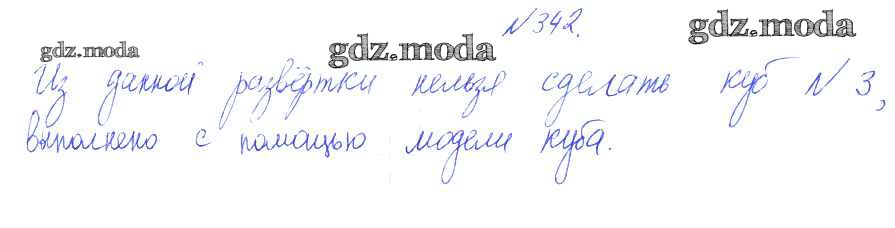 №342.
gdz.moda gdz.moda gdz.moda
Из данной развёртки нельзя сделать куб №3,
выполнено с помощью модели куба.